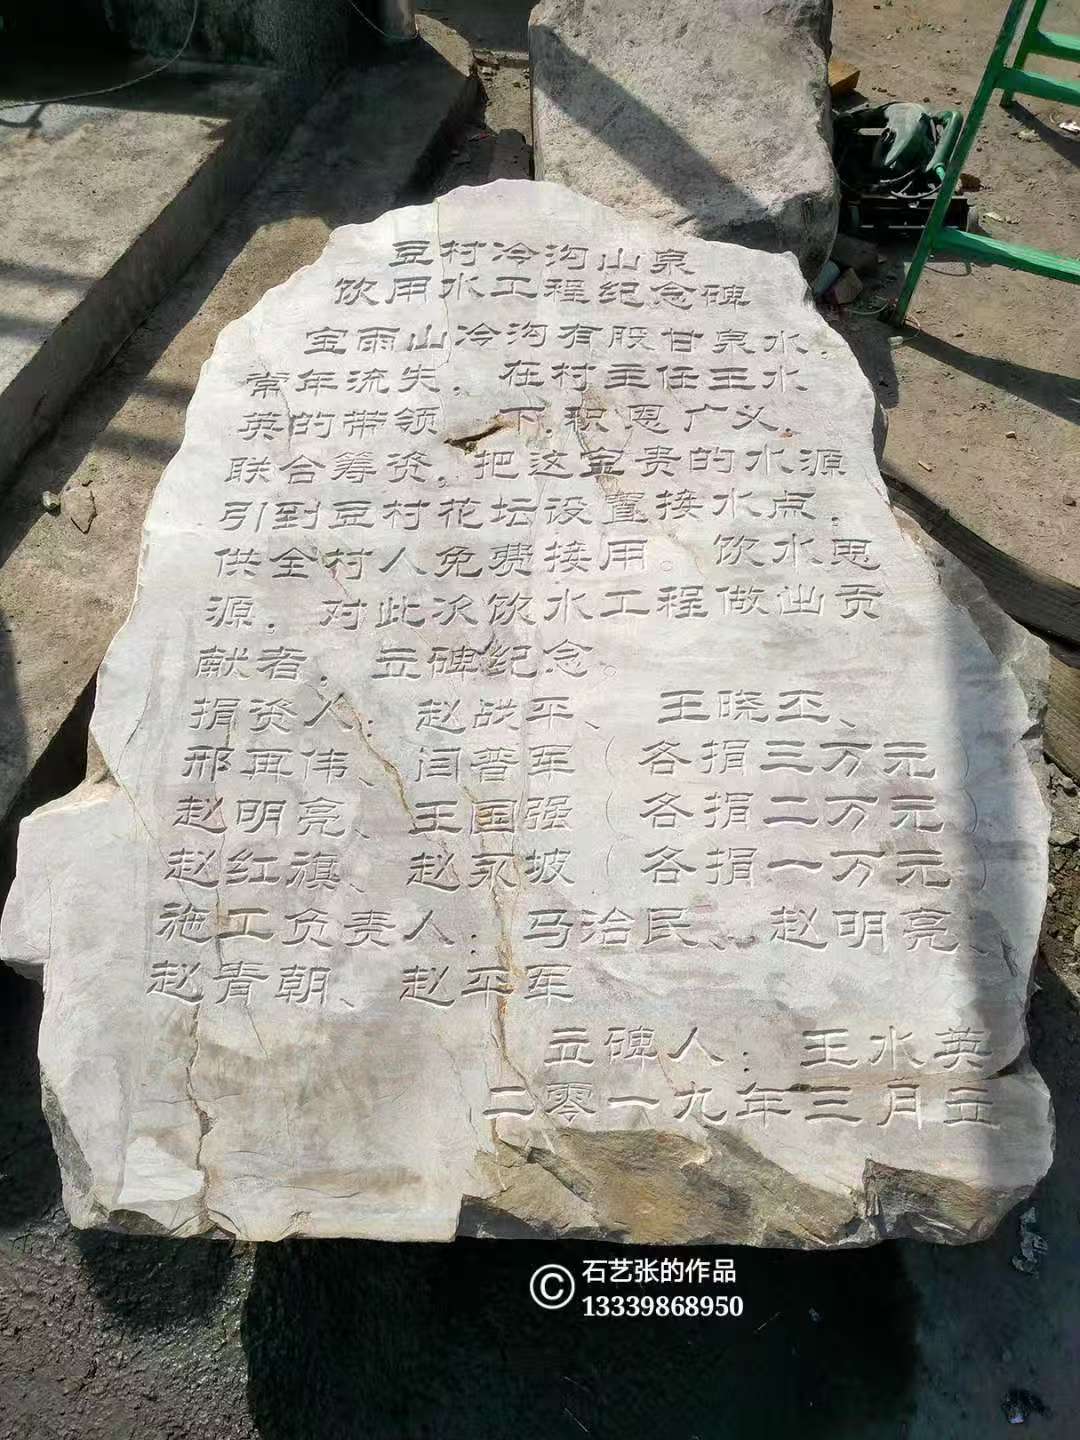 豆村冷沟山泉
饮用水工程纪念碑
宝雨山冷沟有股甘泉水，
常年流失。在村主任王水
英的带领 下，积恩广义，
联合筹资，把这宝贵的水源
引到豆村花坛设置接水点，
供全村人免费接用。饮水思
源，对此次饮水工程做出贡
献者，立碑纪念。
捐资人：赵战平、 王晓丕、
邢再伟、闫普军（各捐三万元）
赵明亮、王国强（各捐二万元）
赵红旗、赵永坡（各捐一万元）
施工负责人：马治民、赵明亮、
赵青朝、赵平军
立碑人：王水英
二零一九年三月立
© 石艺张的作品
13339868950